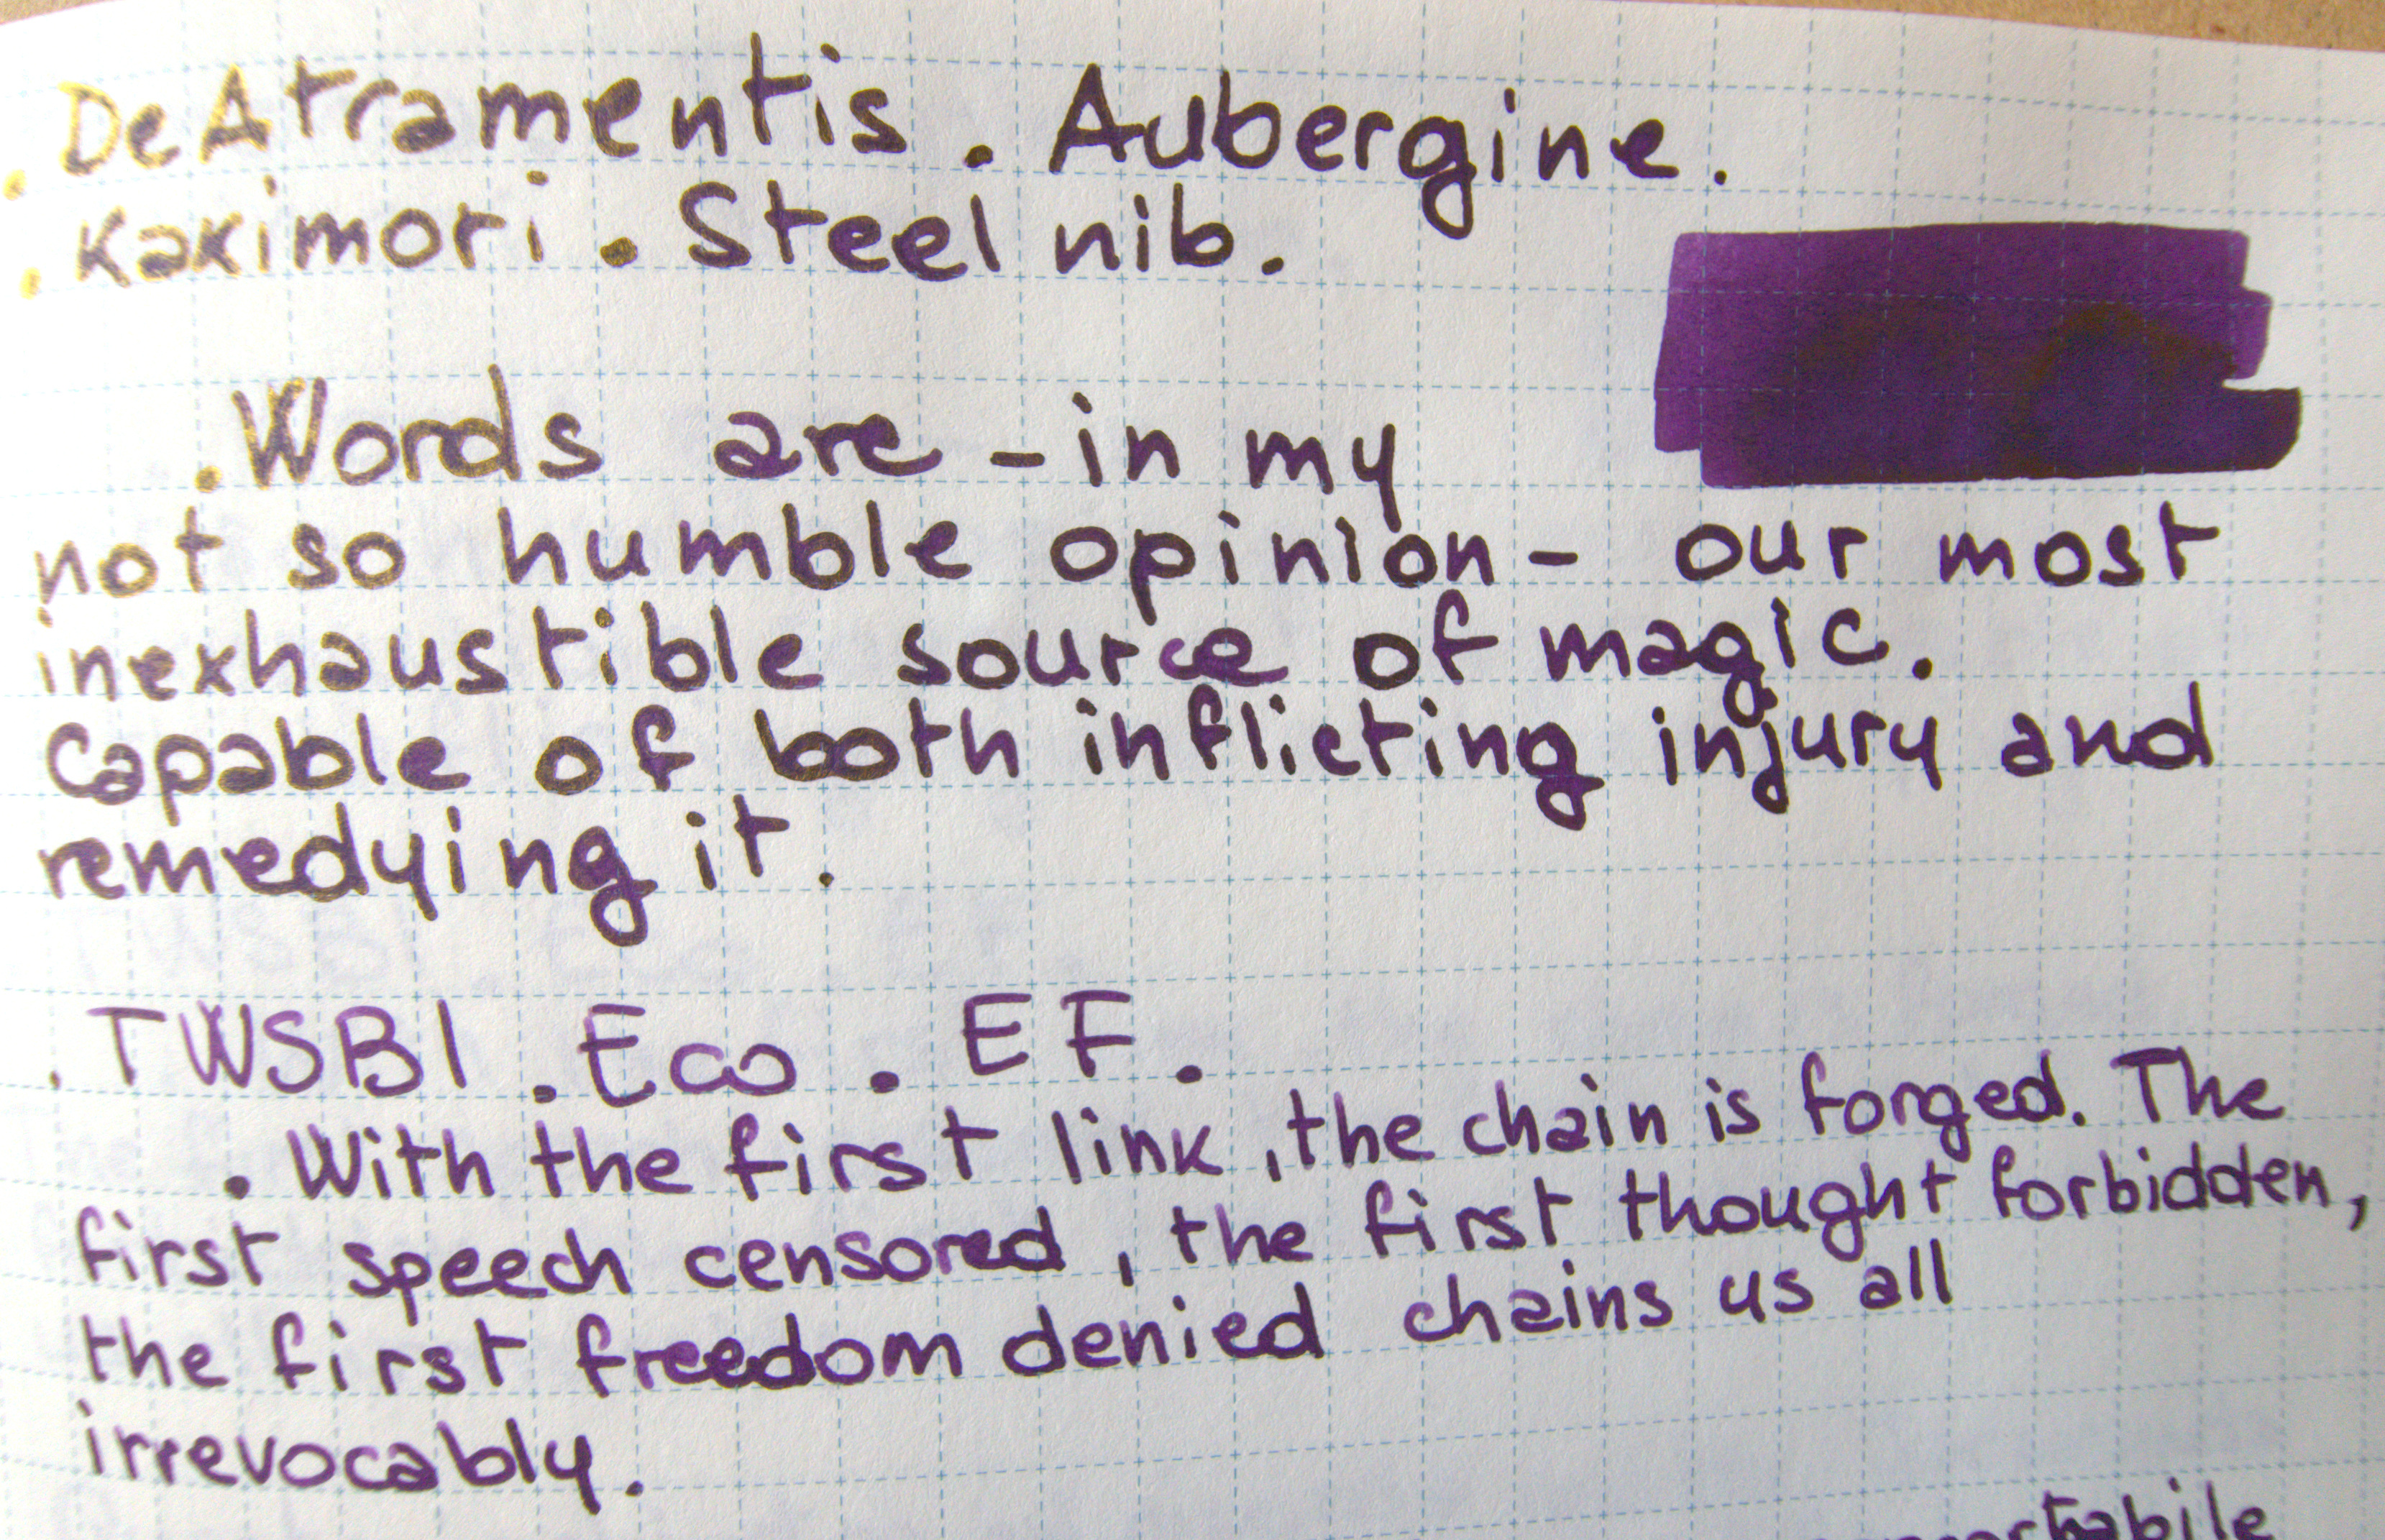 . De Atramentis . Aubergine .
. Kakimori . Steel nib .
. Words are - in my
not so humble opinion - our most
inexhaustible source of magic.
Capable of both inflicting injury and
remedying it.
. TWSBI . Eco . EF .
. With the first link, the chain is forged. The
first speech censored, the first thought forbidden,
the first freedom denied chains us all
irrevocably.